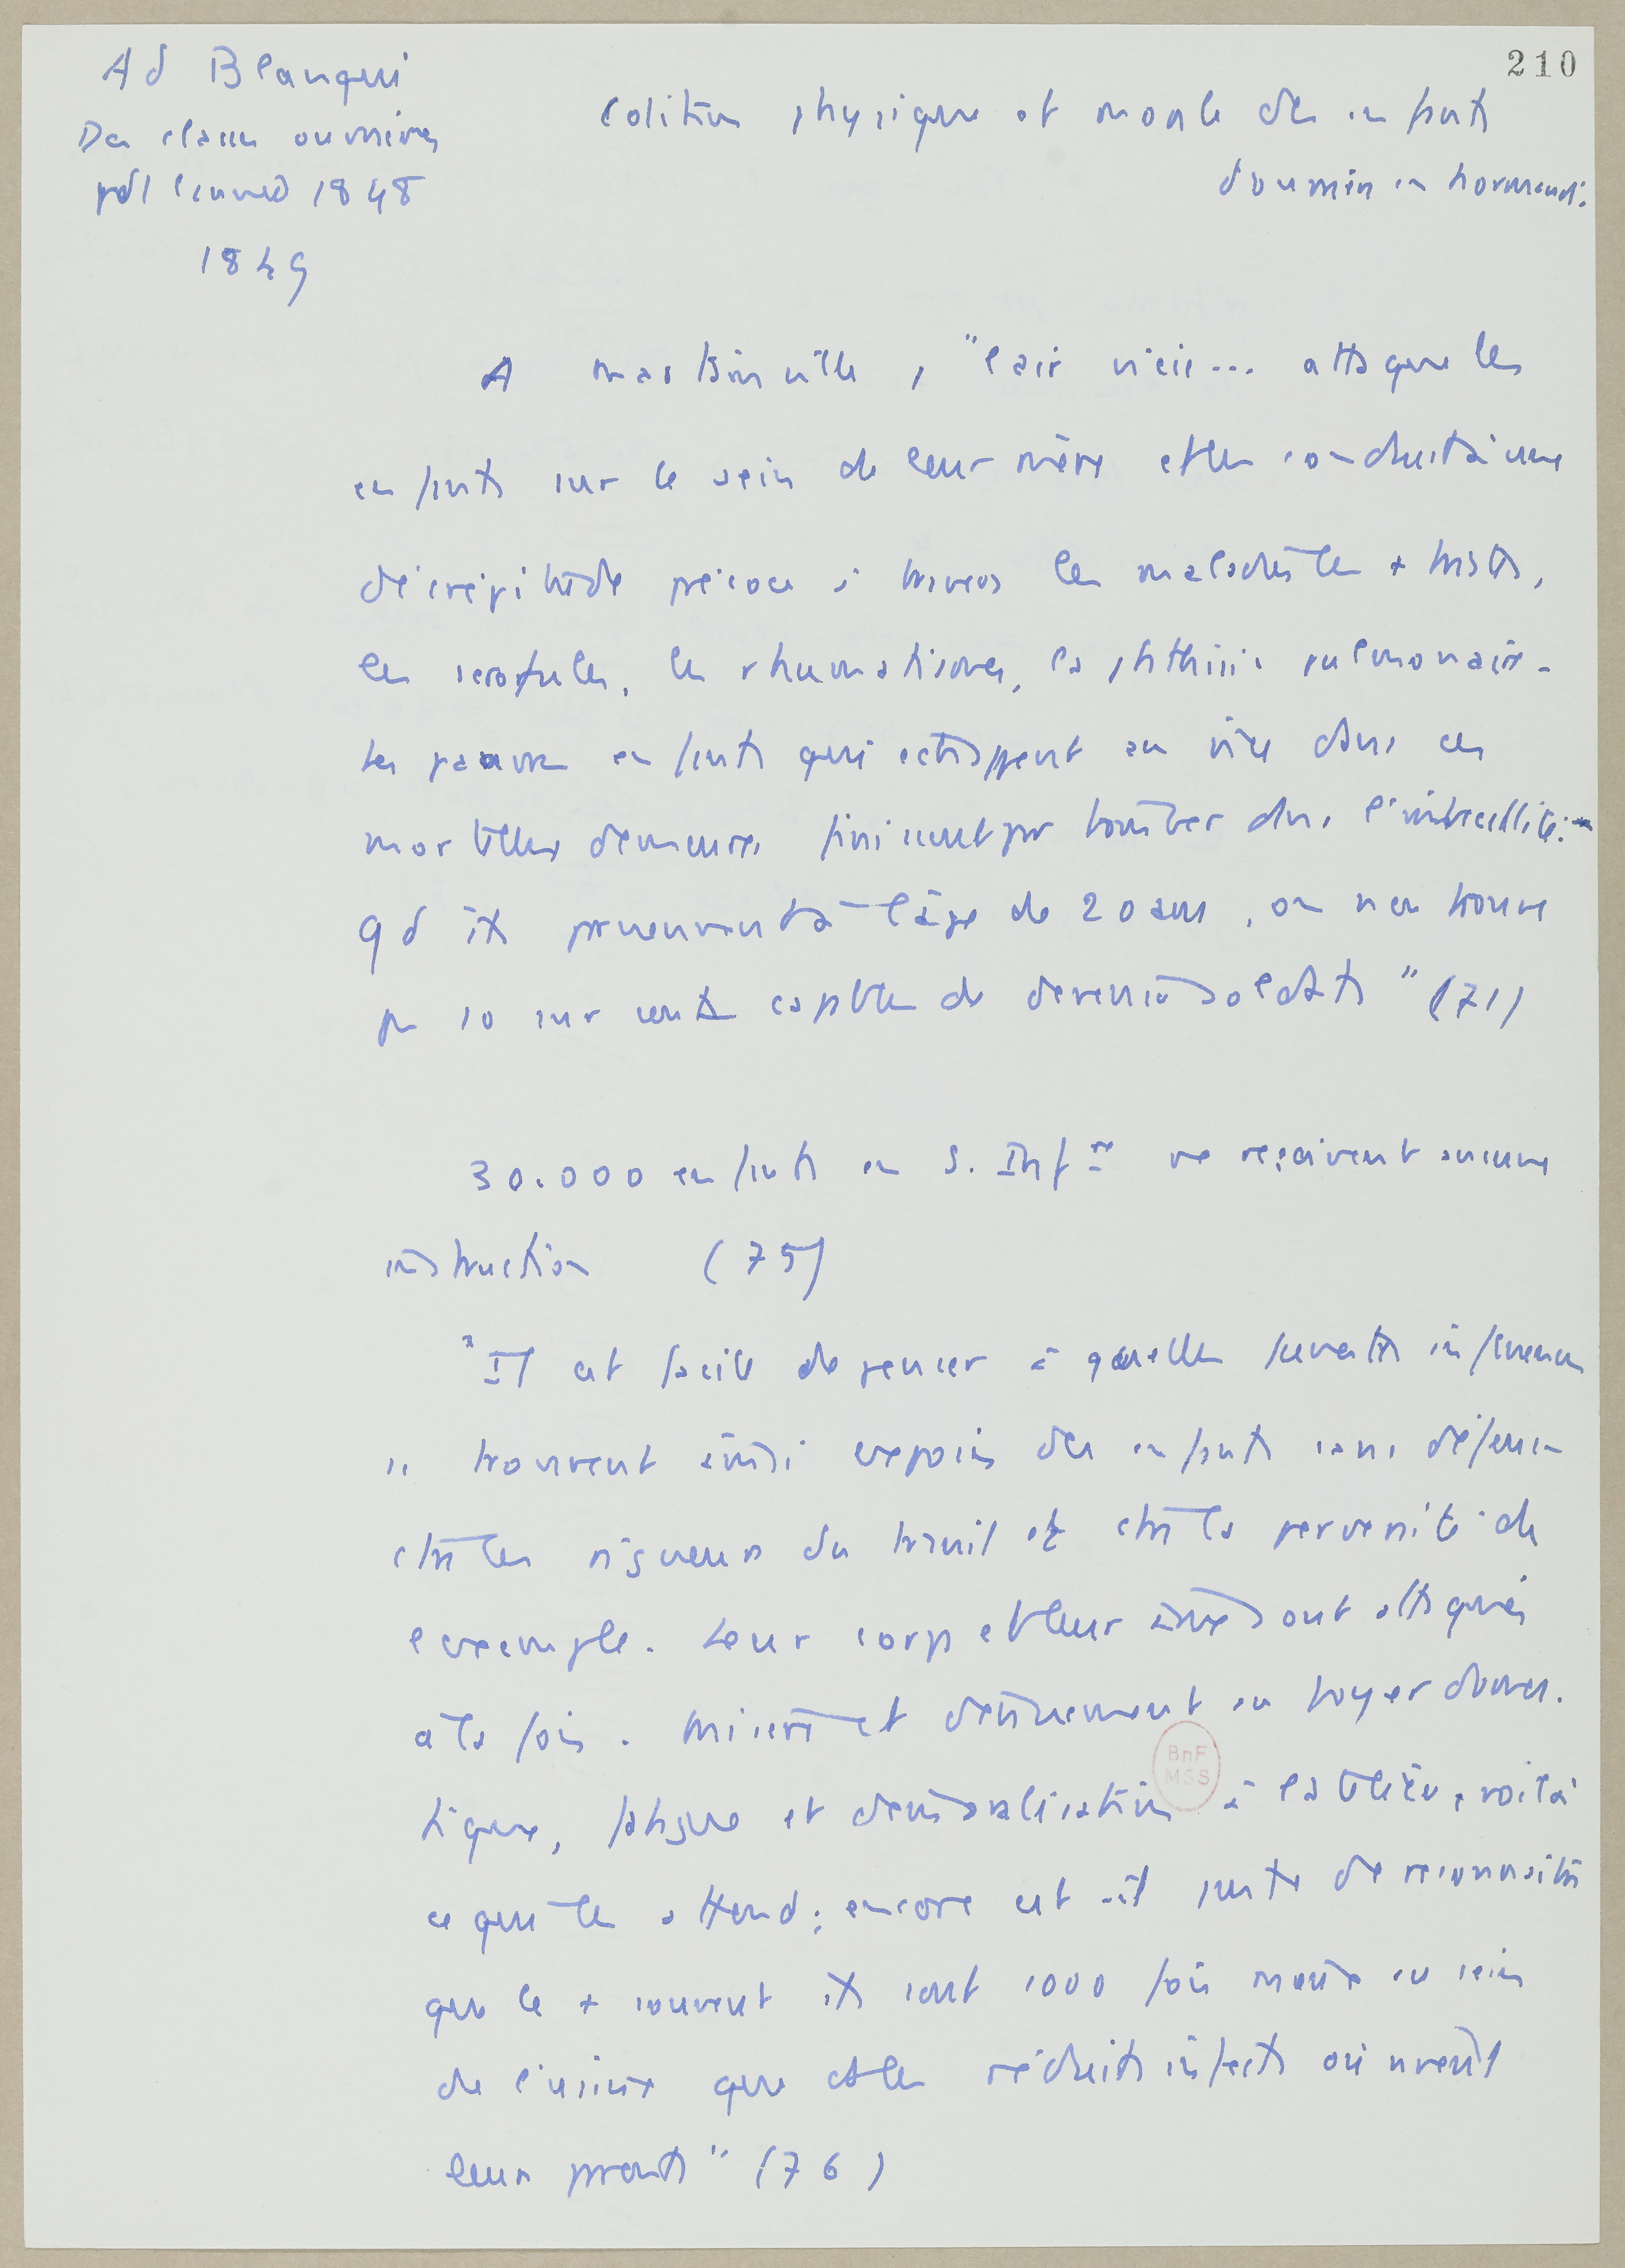 210
Ad Blanqui
Des classes ouvrières
pdt l'année 1848
1849
Cdition physique et morale des enfants
d'ouvriers en Normandie
A Martainville, "l'air vicié... attaque les
enfants sur le sein de leur mère et les conduit à une
décrépitude précoce à travers les maladies les + tristes,
les scrofules, les rhumatismes, la phthisie pulmonaire.
Les pauvres enfants qui échappent au vice dans ces
mortelles demeures finissent par tomber dans l'imbécillité.
Qd ils parviennent à l'âge de 20 ans, on n'en trouve
pas 10 sur cent capables de devenir soldats" (71)
30.000 enfants en S. Infre ne reçoivent aucune
instruction (75)
"Il est facile de penser à quelles funestes influences
se trouvent ainsi exposés des enfants sans défense
ctre les rigueurs du travail et ctre la perversité de
exemple. Leur corps et leur âme sont attaqués
à la fois. Misère et dénuement au foyer domes-
tique, fatigue et démoralisation à l'atelier, voilà
ce qui les attend; encore est-il juste de reconnaître
que le + souvent ils sont 1000 fois mieux au sein
de l'usine que ds les réduits infects où vivent
leurs parents" (76)
BnF
MSS